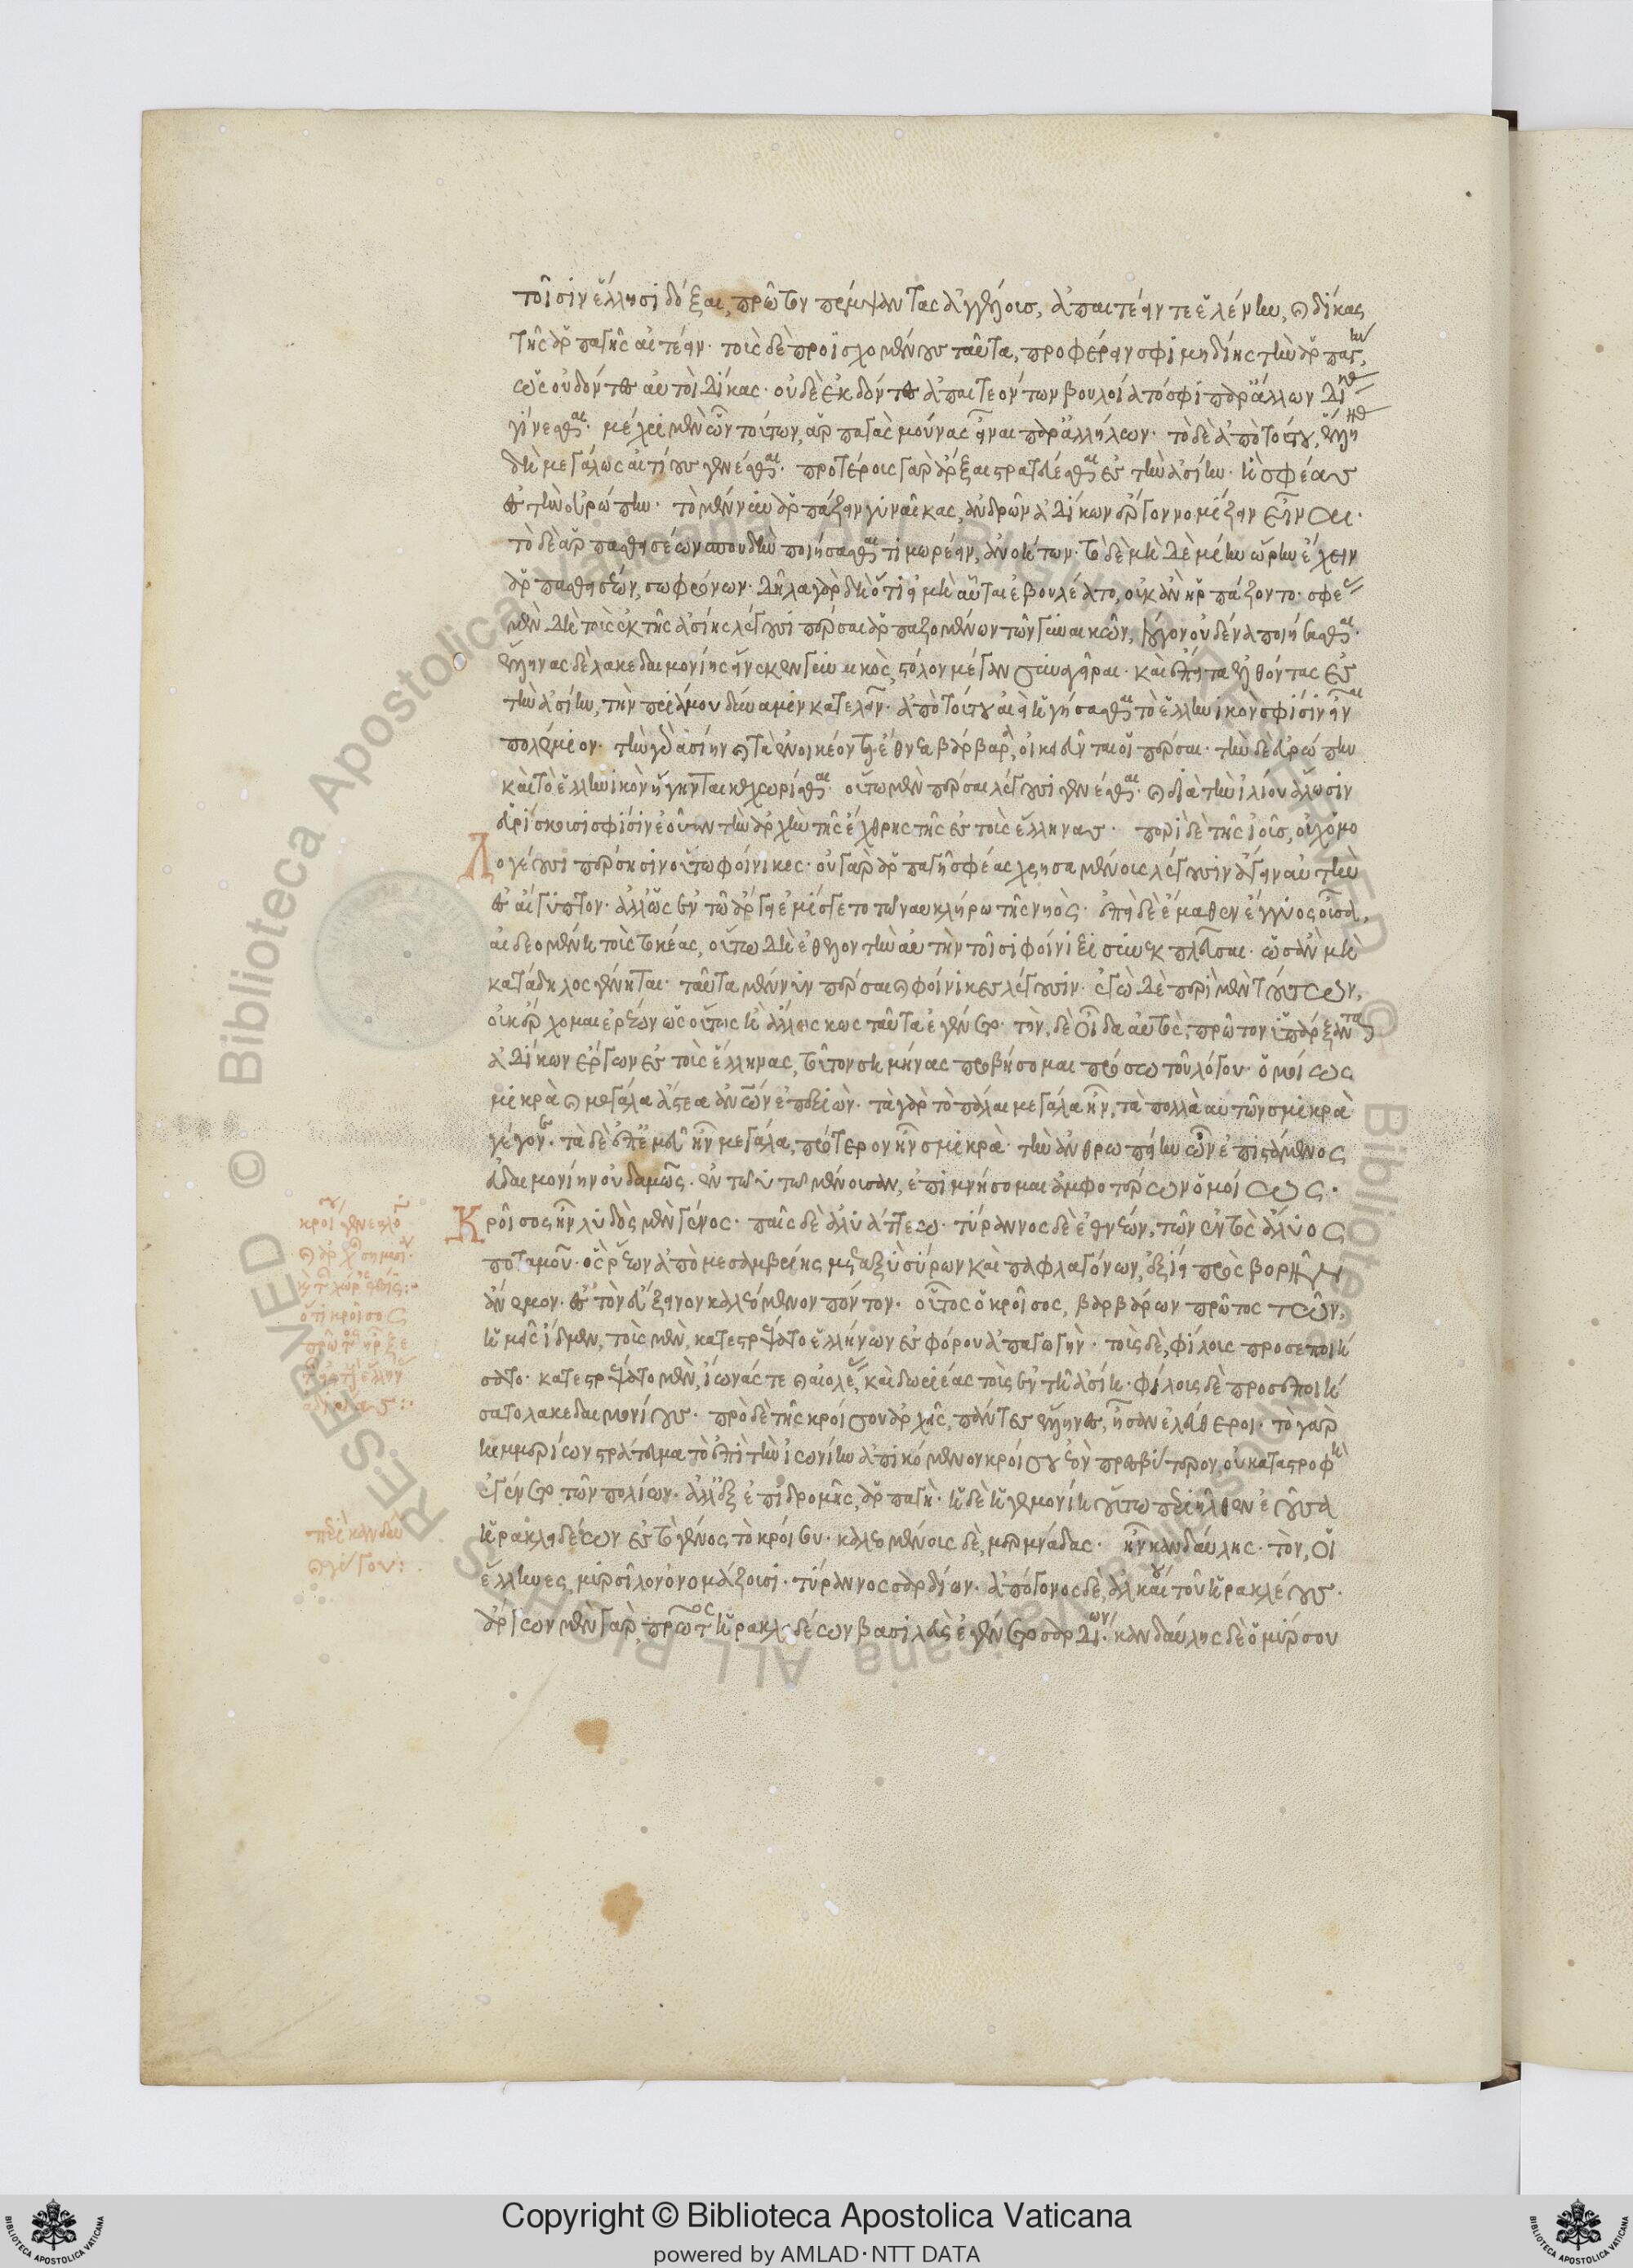 τοῖσιν ἕλλησι δόξαι, πρῶτον πέμψαντας ἀγγέλους, ἀπαιτέειν τε ἑλένην, καὶ δίκας
τῆς ἁρπαγῆς αἰτέειν· τοὺς δὲ προϊσχομένους ταῦτα, προφέρειν σφι μηδείης τὴν ἁρπαγὴν,
ὡς οὐ δόντες αὐτοὶ δίκας· οὐδὲ ἐκδόντες ἀπαιτεόντων βουλοίατό σφι παρ' ἄλλων δίκας
γίνεσθαι· μέχρι μὲν ὦν τούτων, ἁρπαγὰς μούνας εἶναι παρ' ἀλλήλων· τὸ δὲ ἀπὸ τούτου, ἕλληνας
δὴ μεγάλως αἰτίους γενέσθαι· προτέρους γὰρ ἄρξαι στρατεύεσθαι ἐς τὴν ἀσίην· ἢ σφέας
ἐς τὴν εὐρώπην· τὸ μέν νυν ἁρπάζειν γυναῖκας, ἀνδρῶν ἀδίκων ἔργον νομίζειν εἶναι·
τὸ δὲ ἁρπασθησέων σπουδὴν ποιήσασθαι τιμωρέειν, ἀνοήτων· τὸ δὲ μὴ δεμίην ὤρην ἔχειν
ἁρπασθησέων, σωφρόνων· δῆλα γὰρ δὴ ὅτι εἰ μὴ αὗται ἐβουλέατο, οὐκ ἂν ἡρπάζοντο· σφέας
μὲν δὴ τοὺς ἐκ τῆς ἀσίης λέγουσι πέρσαι ἁρπαζομένων τῶν γυναικῶν, λόγον οὐδένα ποιήσασθαι·
ἕλληνας δὲ λακεδαιμονίης εἵνεκεν γυναικὸς, στόλον μέγαν συναγεῖραι· καὶ ἔπειτα ἐλθόντας ἐς
τὴν ἀσίην, τὴν πριάμου δύναμιν κατελεῖν· ἀπὸ τούτου αἰεὶ ἡγήσασθαι τὸ ἑλληνικὸν σφίσιν εἶναι
πολέμιον· τὴν γὰρ ἀσίην καὶ τὰ ἐνοικέοντα ἔθνεα βάρβαρα, οἰκηεῦνται οἱ πέρσαι· τὴν δὲ εὐρώπην
καὶ τὸ ἑλληνικὸν ἥγηνται κεχωρίσθαι· οὕτω μὲν πέρσαι λέγουσι γενέσθαι· καὶ διὰ τὴν ἰλίου ἅλωσιν
εὑρίσκουσι σφίσιν ἐοῦσαν τὴν ἀρχὴν τῆς ἔχθρης τῆς ἐς τοὺς ἕλληνας· περὶ δὲ τῆς ἰοῦς, οὐχ ὁμο
λογέουσι πέρσῃσιν οὕτω φοίνικες· οὐ γὰρ ἁρπαγῇ σφέας χρησαμένους λέγουσιν ἀγαγεῖν αὐτὴν
ἐς αἴγυπτον· ἀλλ' ὡς ἐν τῷ ἄργει ἐμίσγετο τῷ ναυκλήρῳ τῆς νηός· ἐπεὶ δὲ ἔμαθεν ἔγγυος οὖσα,
αἰδεομένη τοὺς τοκέας, οὕτω δὴ ἐθέλοντὴν αὐτὴν τοῖσι φοίνιξι συνεκπλῶσαι· ὡς ἂν μὴ
κατάδηλος γένηται· ταῦτα μέν νυν πέρσαι καὶ φοίνικες λέγουσιν· ἐγὼ δὲ περὶ μὲν τουτέων,
οὐκ ἔρχομαι ἐρέων ὡς οὕτως ἢ ἄλλως κως ταῦτα ἐγένετο· τὸν, δὲ οἶδα αὐτὸς, πρῶτον ὑπάρξαντα
ἀδίκων ἔργων ἐς τοὺς ἕλληνας, τοῦτον σημήνας προβήσομαι πρόσω τοῦ λόγου· ὁμοίως
μικρὰ καὶ μεγάλα ἄστεα ἀνθρώπων ἐπεξιών· τὰ γὰρ τὸ πάλαι μεγάλα ἦν, τὰ πολλὰ αὐτῶν σμικρὰ
γέγονε· τὰ δὲ ἐπ' ἐμεῦ ἦν μεγάλα, πρότερον ἦν σμικρά· τὴν ἀνθρωπηίην ὦν ἐπιστάμενος
εὐδαιμονίην οὐδαμῶς· ἐν τωὐτῷ μένουσαν, ἐπιμνήσομαι ἀμφοτέρων ὁμοίως·
Κροῖσος ἦν λυδὸς μὲν γένος· παῖς δὲ ἀλυάττεω· τύραννος δὲ ἐθνέων, τῶν ἐντὸς ἅλυος
ποταμοῦ· ὃς ῥέων ἀπὸ μεσαμβρίης μεταξὺ σύρων καὶ παφλαγόνων, ἐξίει πρὸς βορῆν
ἄνεμον· ἐς τὸν εὔξεινον καλεόμενον πόντον· οὗτος ὁ κροῖσος, βαρβάρων πρῶτος τῶν,
ἡμεῖς ἴδμεν, τοὺς μὲν, κατεστρέψατο ἑλλήνων ἐς φόρου ἀπαγωγήν· τοὺς δὲ, φίλους προσεποιή
σατο· κατεστρέψατο μὲν, ἴωνάς τε καὶ αἰολέας, καὶ δωριέας τοὺς ἐν τῇ ἀσίῃ· φίλους δὲ προσεποιή
σατο λακεδαιμονίους· πρὸ δὲ τῆς κροίσου ἀρχῆς, πάντες ἕλληνες, ἦσαν ἐλεύθεροι· τὸ γὰρ
κιμμερίων στράτευμα τὸ ἐπὶ τὴν ἰωνίην ἀπικόμενον κροίσου ἐὸν πρεσβύτερον, οὐ καταστροφὴ
ἐγένετο τῶν πολίων· ἀλλ' ἐξ ἐπιδρομῆς, ἁρπαγή· ἡ δὲ ἡγεμονίη οὕτω περιῆλθεν ἐοῦσα
ἡρακλειδέων ἐς τὸ γένος τὸ κροίσου· καλεομένους δὲ, μερμνάδας· ἦν κανδαύλης· τὸν, οἱ
ἕλληνες, μυρσίλον ὀνομάζουσι· τύραννος σαρδίων· ἀπόγονος δὲ, ἀλκαίου τοῦ ἡρακλέους·
ἄργων μὲν γὰρ, πρῶτος ἡρακλειδέων βασιλεὺς ἐγένετο σαρδίων· κανδαύλης δὲ ὁ μύρσου